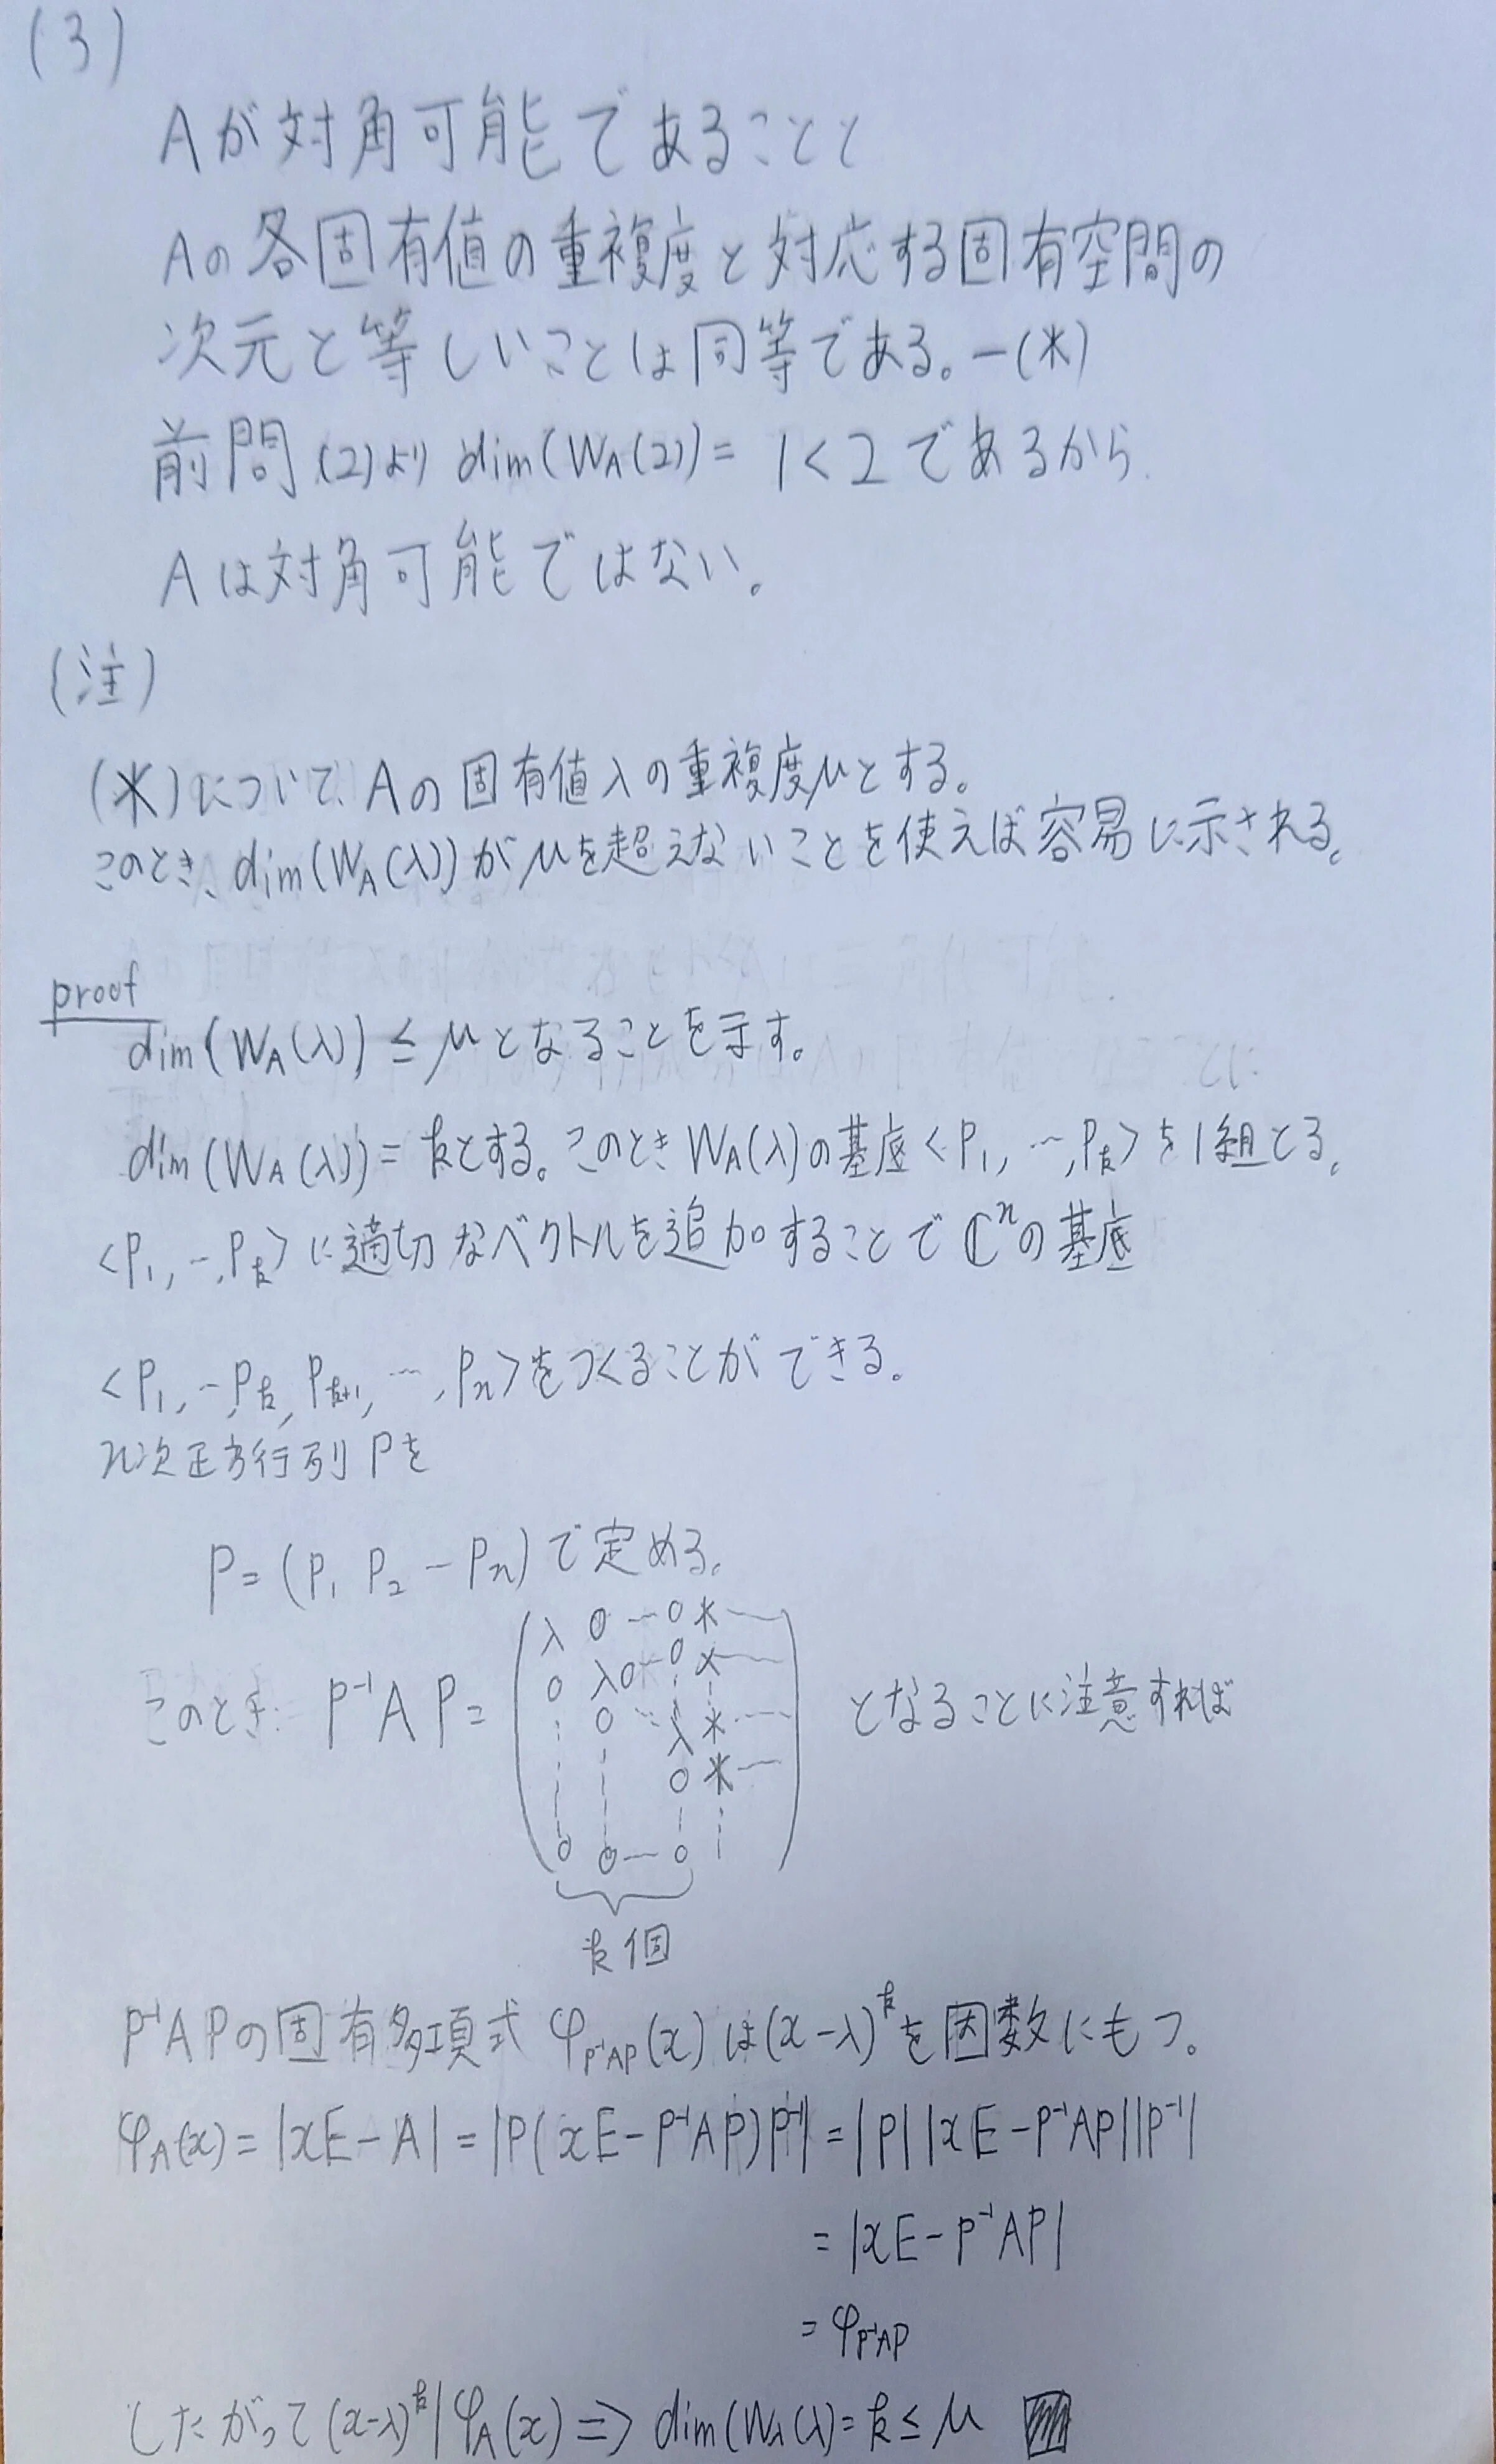 (3)
Aが対角可能であることと
Aの各固有値の重複度と対応する固有空間の
次元と等しいことは同等である。―(*)
前問(2)より dim(W_A(2)) = 1 < 2 であるから
Aは対角可能ではない。
(注)
(*)について、Aの固有値λの重複度μとする。
このとき、dim(W_A(λ))がμを超えないことを使えば容易に示される。
proof
dim(W_A(λ)) ≤ μ となることを示す。
dim(W_A(λ)) = kとする。このとき W_A(λ)の基底<P₁, …, P_k>を1組とる。
<P₁, …, P_k>に適切なベクトルを追加することで ℂⁿの基底
<P₁, …, P_k, P_{k+1}, …, P_n>をつくることができる。
n次正方行列 Pを
P = (P₁ P₂ … P_n) で定める。
このとき P⁻¹AP = ( λ 0 … 0 * …
0 λ 0 … 0 * …
⋮ 0 ⋱ λ * …
⋮ ⋮ 0 * …
0 0 … 0 ⋮ ) となることに注意すれば
k個
P⁻¹APの固有多項式 φ_{P⁻¹AP}(x) は (x-λ)^k を因数にもつ。
φ_A(x) = |xE - A| = |P(xE - P⁻¹AP)P⁻¹| = |P| |xE - P⁻¹AP| |P⁻¹|
= |xE - P⁻¹AP|
= φ_{P⁻¹AP}
したがって (x-λ)^k | φ_A(x) ⇒ dim(W_A(λ) = k ≤ μ